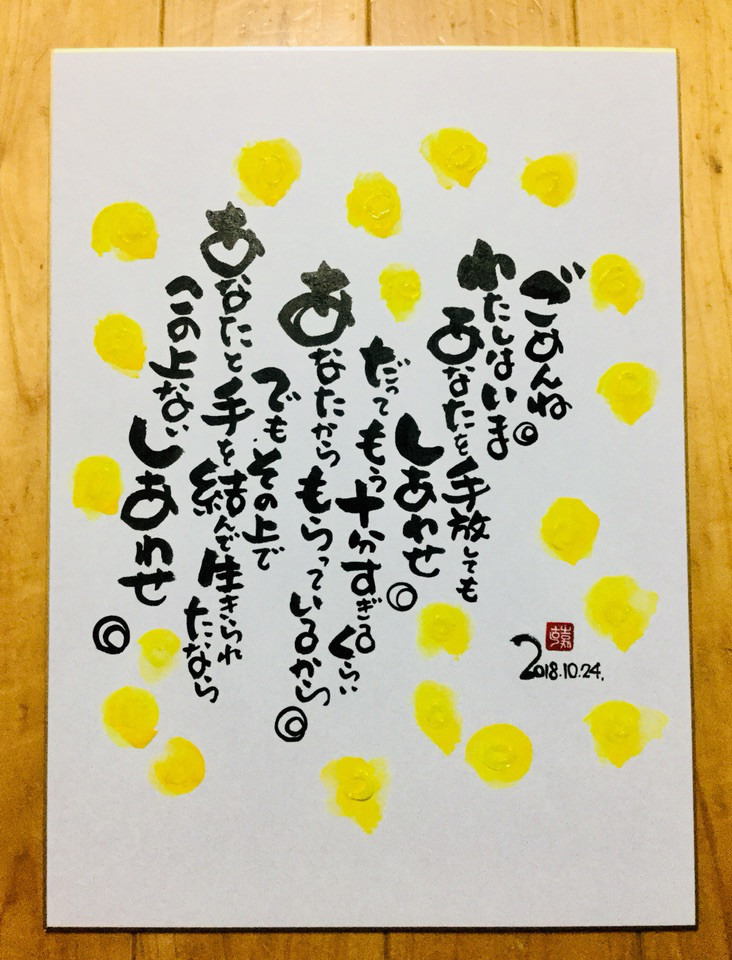 ごめんね
わたしはいま
あなたを手放しても
しあわせ
だってもう十分すぎるくらい
あなたからもらっているから
でもその上で
あなたと手を結んで生きられたなら
この上ないしあわせ
2018.10.24.